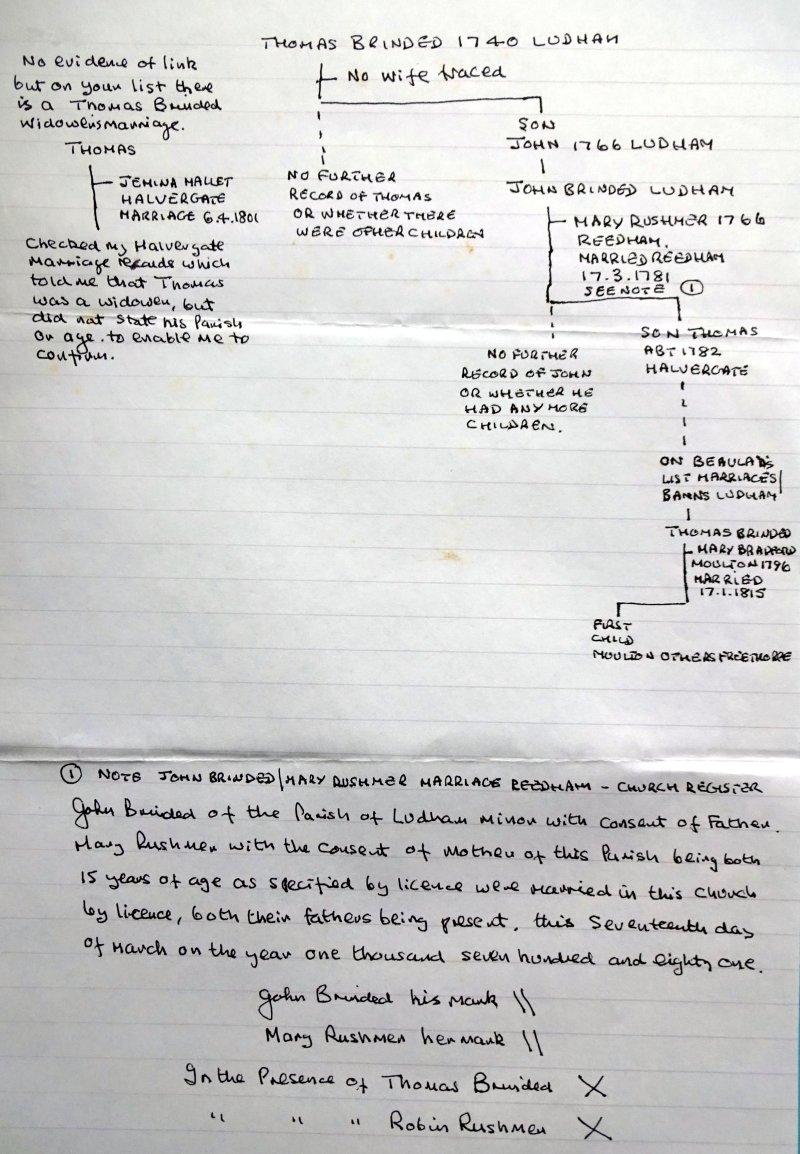 THOMAS BRINDED 1740 LUDHAM
No wife traced
No evidence of link
but on your list there
is a Thomas Brinded
Widowers marriage.
THOMAS
JEMINA MALLET
HALVERGATE
MARRIAGE 6.4.1801
Checked my Halvergate
Marriage records which
told me that Thomas
was a widower, but
did not state his Parish
or age. to enable me to
confirm.
NO FURTHER
RECORD OF THOMAS
OR WHETHER THERE
WERE OTHER CHILDREN
SON
JOHN 1766 LUDHAM
JOHN BRINDED LUDHAM
MARY RUSHMER 1766
REEDHAM.
MARRIED REEDHAM
17.3.1781
SEE NOTE ①
NO FURTHER
RECORD OF JOHN
OR WHETHER HE
HAD ANY MORE
CHILDREN.
SON THOMAS
ABT 1782
HALVERGATE
ON BEAULAH'S
LIST MARRIAGES/
BANNS LUDHAM
THOMAS BRINDED
MARY BRADFORD
MOULTON 1796
MARRIED
17.1.1815
FIRST
CHILD
MOULTON OTHERS FREETHORPE
① NOTE JOHN BRINDED/MARY RUSHMER MARRIAGE REEDHAM - CHURCH REGISTER
John Brinded of the Parish of Ludham Minor with consent of Father.
Mary Rushmer with the consent of Mother of this Parish being both
15 years of age as specified by licence were married in this church
by licence, both their fathers being present. this Seventeenth day
of March on the year one thousand seven hundred and eighty one.
John Brinded his mark \\
Mary Rushmer her mark \\
In the Presence of Thomas Brinded X
" " " Robin Rushmer X